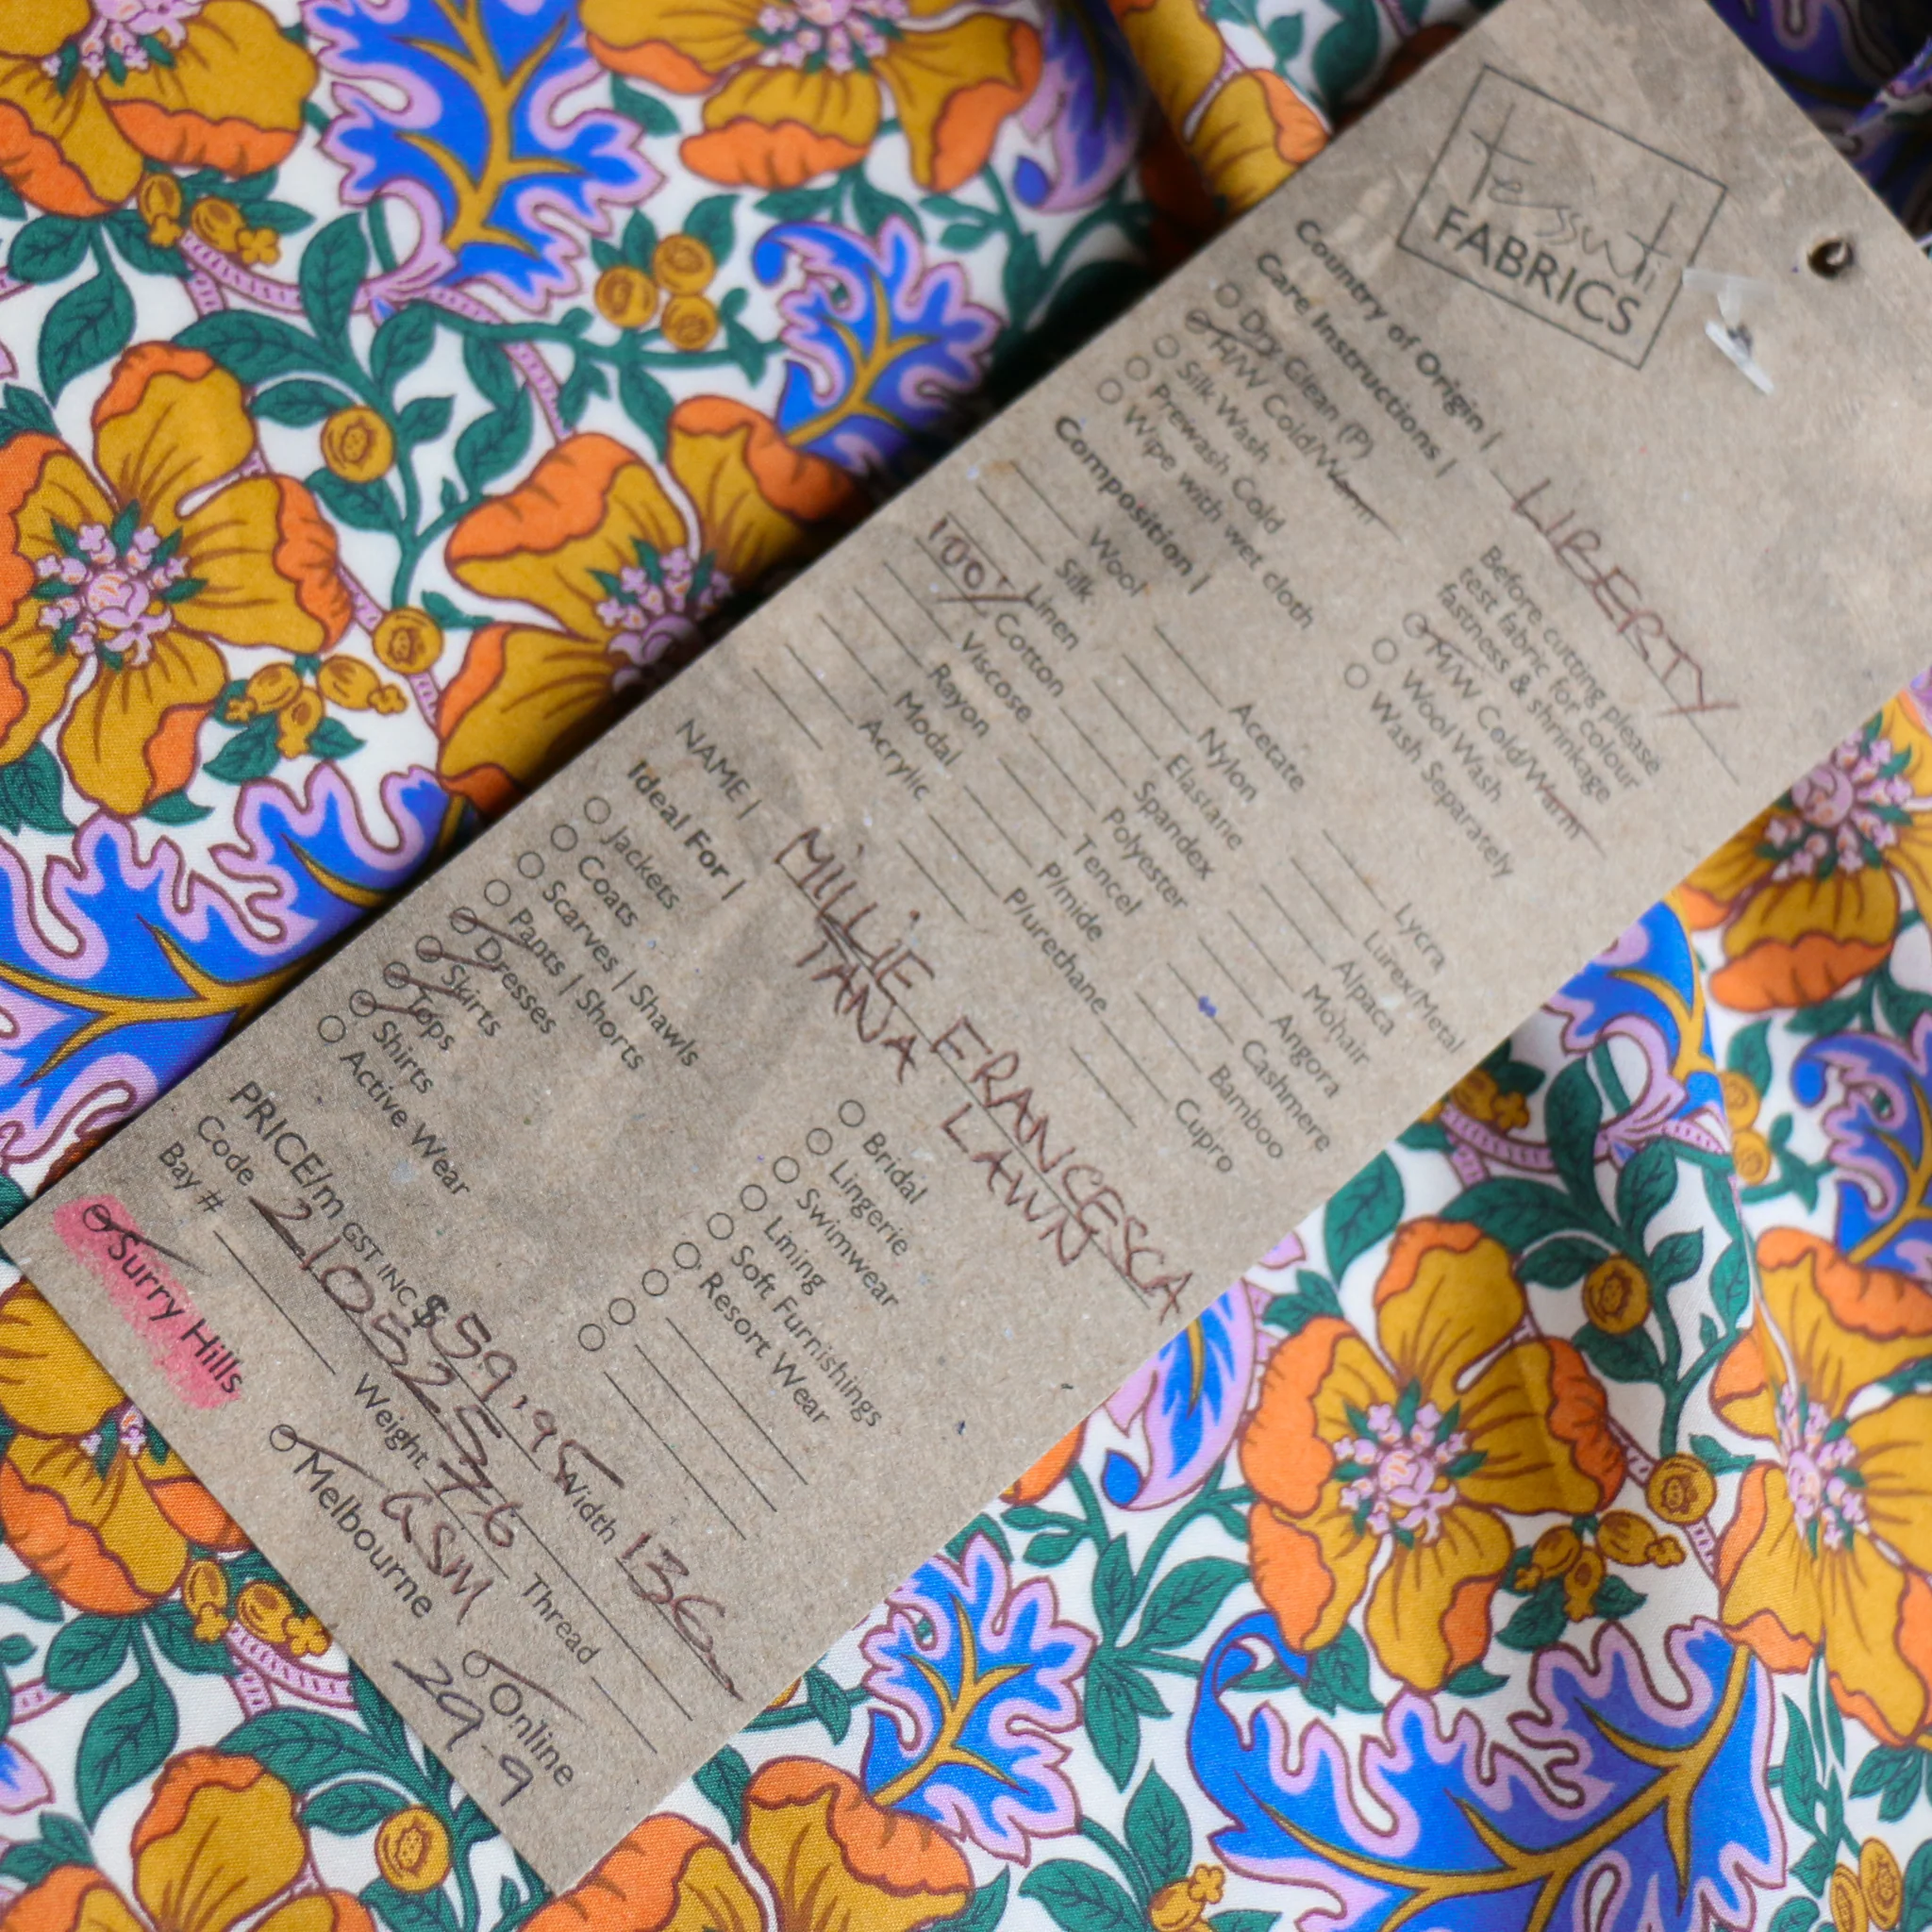 Tessuti
FABRICS
Country of Origin | LIBERTY
Care Instructions |
Dry Clean (P)
H/W Cold/Warm
Silk Wash
Prewash Cold
Wipe with wet cloth
Before cutting please
test fabric for colour
fastness & shrinkage
M/W Cold/Warm
Wool Wash
Wash Separately
Composition |
Wool
Silk
Linen
100% Cotton
Viscose
Rayon
Modal
Acrylic
Acetate
Nylon
Elastane
Spandex
Polyester
Tencel
P/mide
P/urethane
Lycra
Lurex/Metal
Alpaca
Mohair
Angora
Cashmere
Bamboo
Cupro
NAME | MILLIE FRANCESCA
TANA LAWN
Ideal For |
Jackets
Coats
Scarves | Shawls
Pants | Shorts
Dresses
Skirts
Tops
Shirts
Active Wear
Bridal
Lingerie
Swimwear
Lining
Soft Furnishings
Resort Wear
PRICE/m GST INC $ 59.95 Width 136
Code 210525 Thread
Bay # Weight 76
GSM
Surry Hills Melbourne Online
29-9